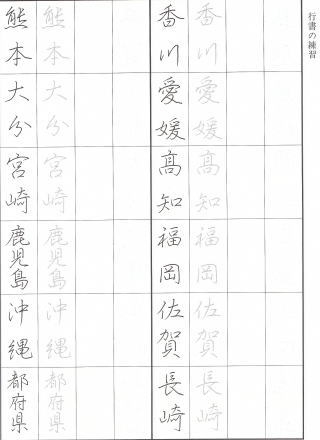 行書の練習
香川 香川
愛媛 愛媛
高知 高知
福岡 福岡
佐賀 佐賀
長崎 長崎
熊本 熊本
大分 大分
宮崎 宮崎
鹿児島 鹿児島
沖縄 沖縄
都府県 都府県